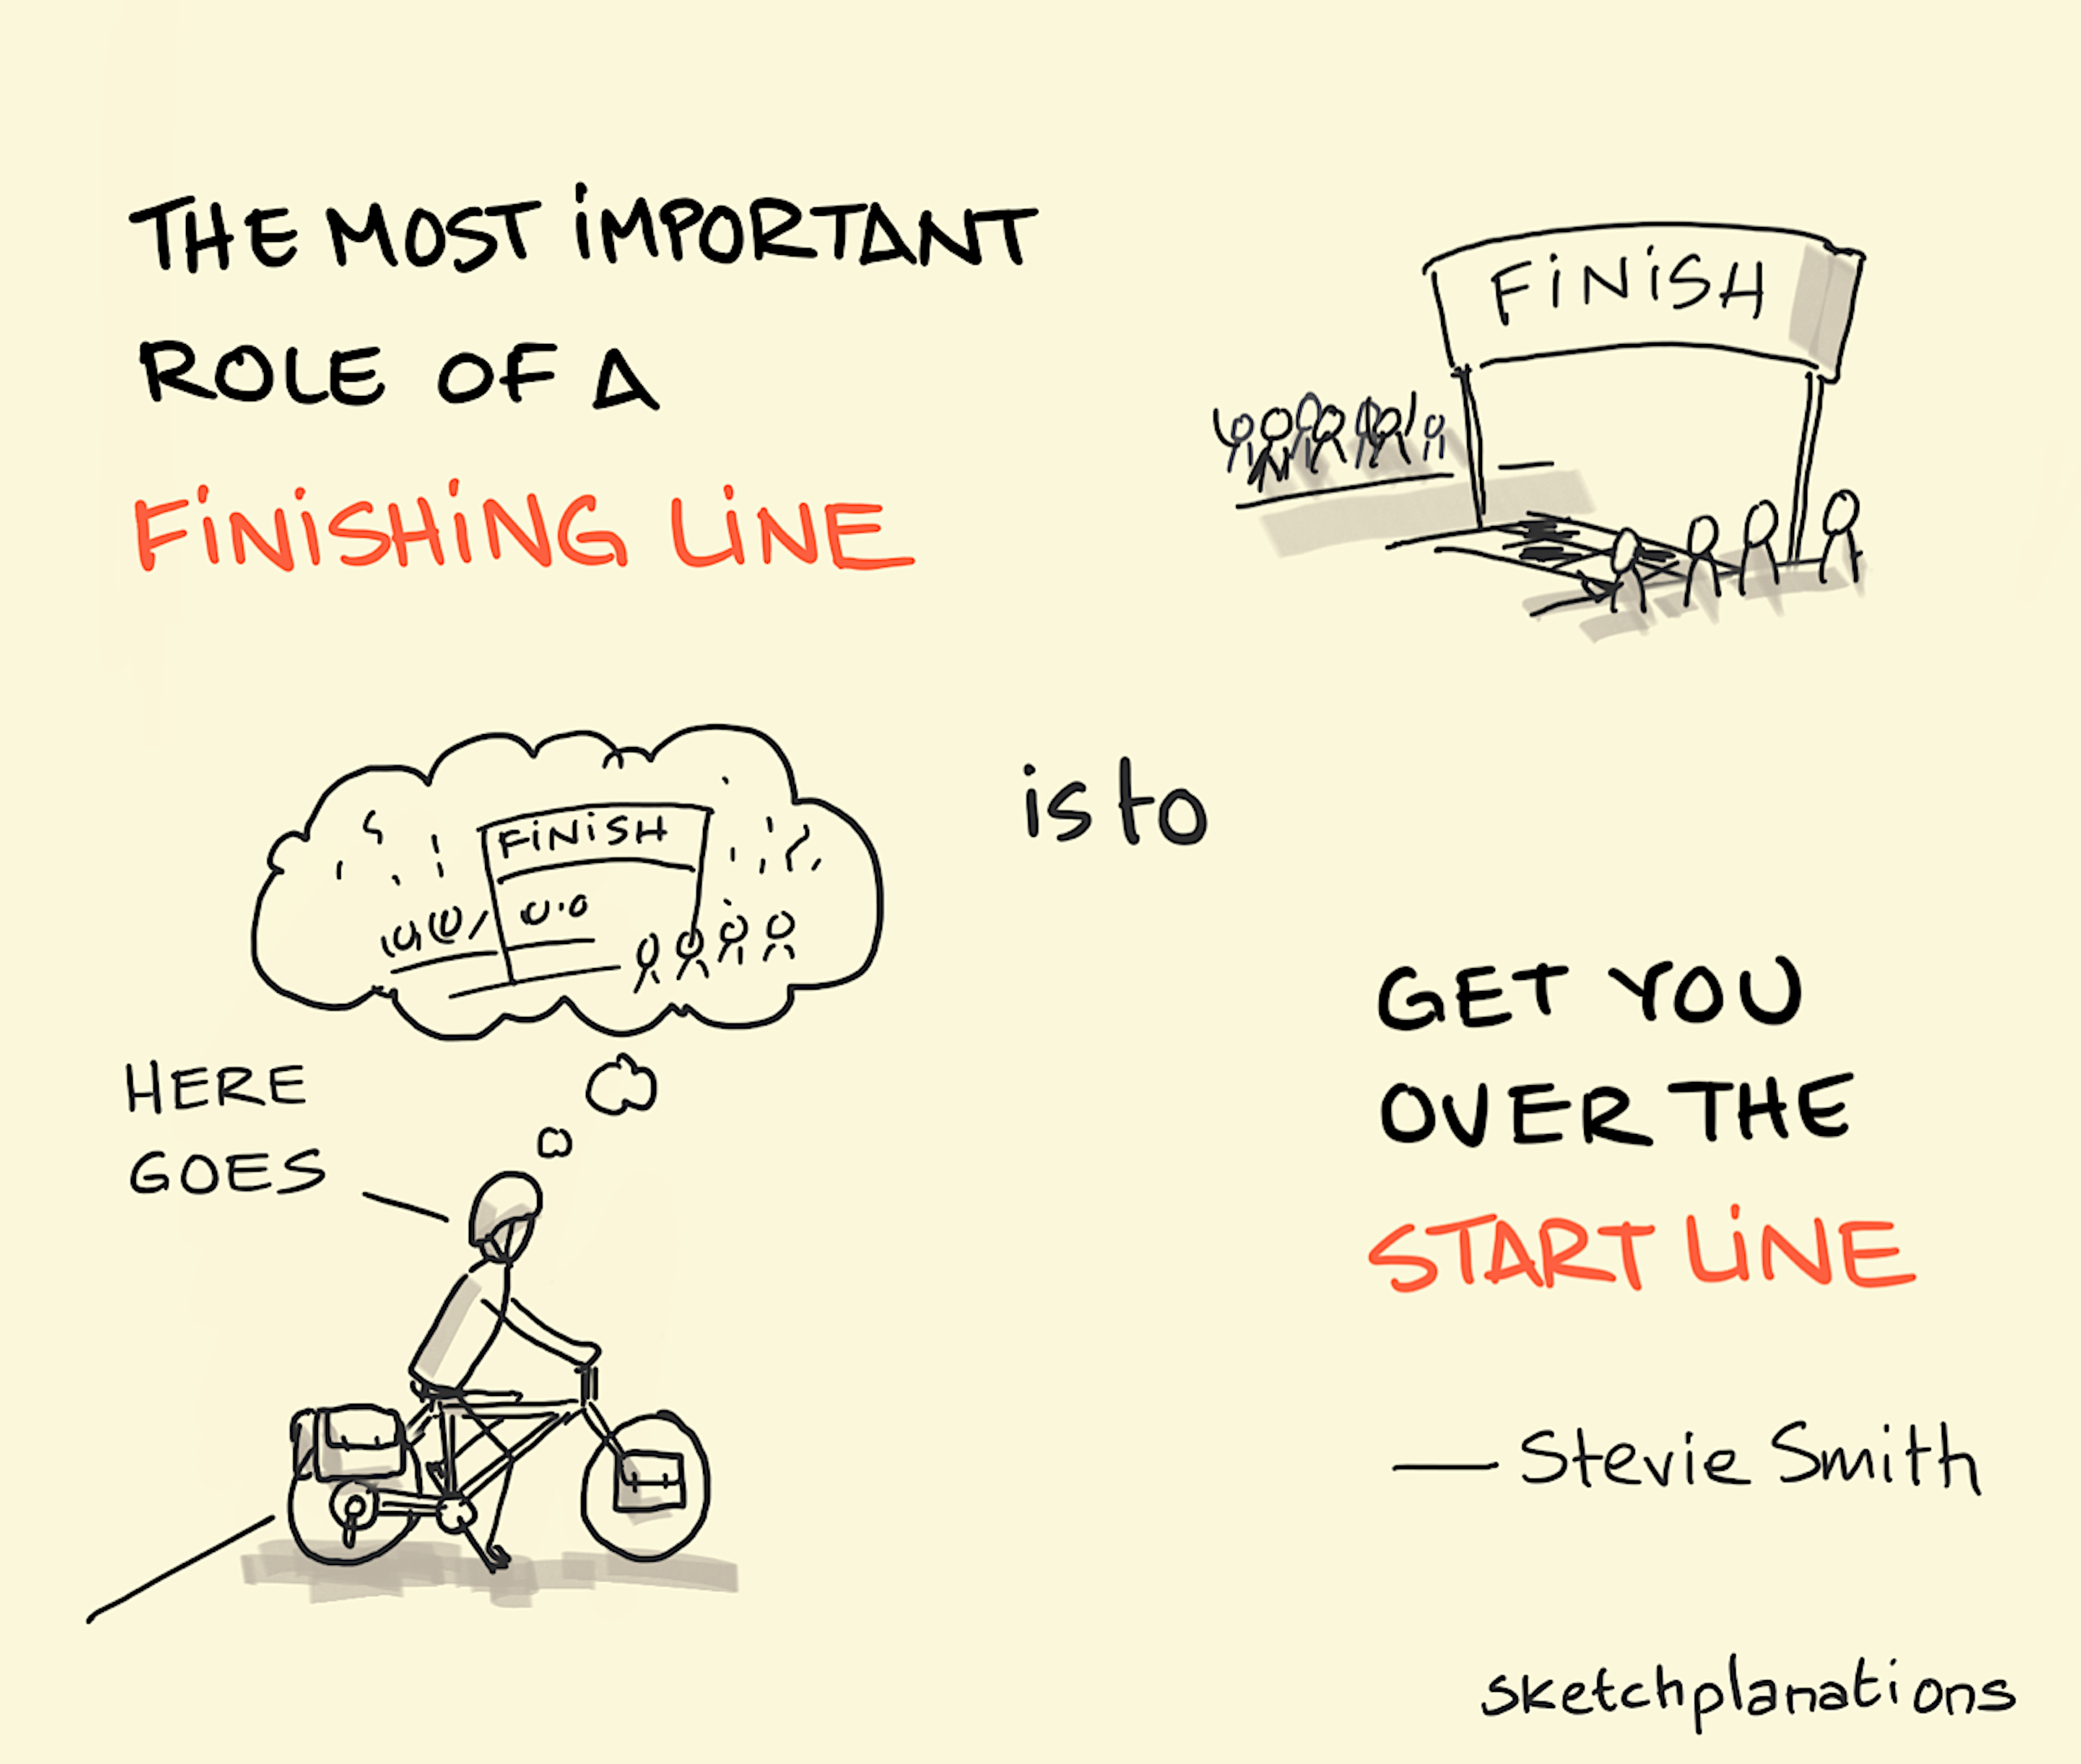 THE MOST IMPORTANT
ROLE OF A
FINISHING LINE
FINISH
is to
FINISH
HERE
GOES
GET YOU
OVER THE
START LINE
— Stevie Smith
sketchplanations